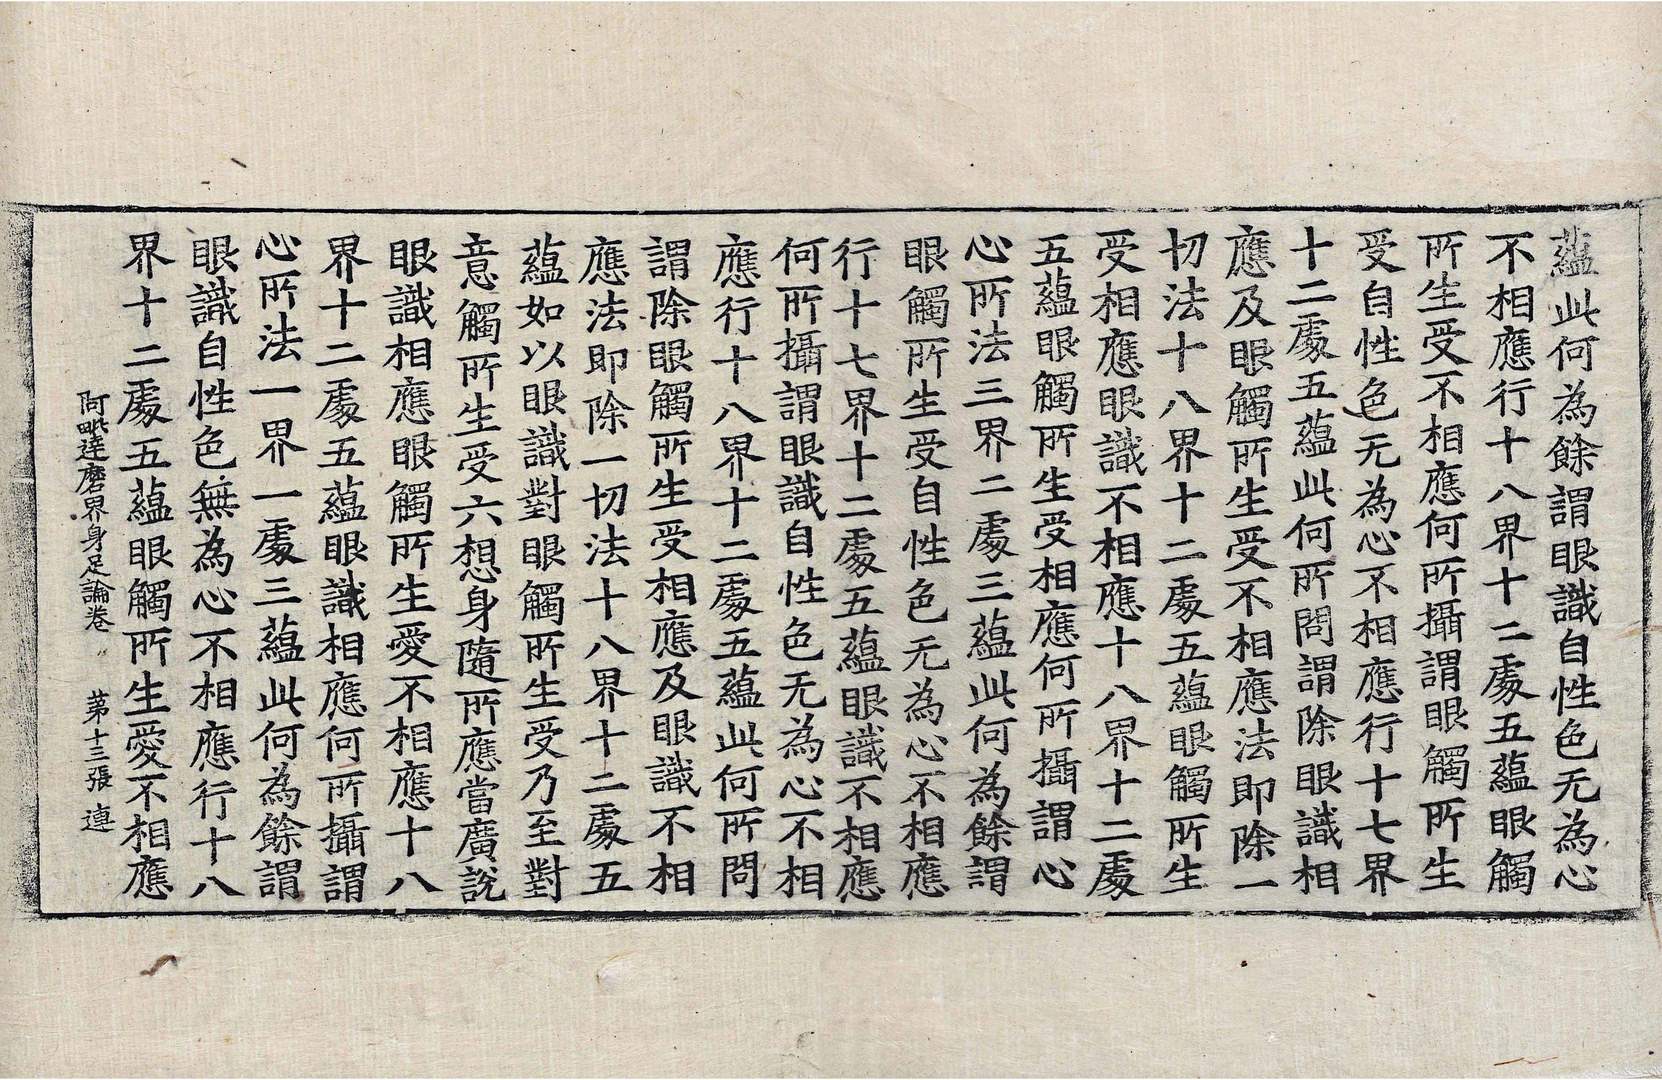 蘊此何為餘謂眼識自性色无為心
不相應行十八界十二處五蘊眼觸
所生受不相應何所攝謂眼觸所生
受自性色无為心不相應行十七界
十二處五蘊此何所問謂除眼識相
應及眼觸所生受不相應法即除一
切法十八界十二處五蘊眼觸所生
受相應眼識不相應十八界十二處
五蘊眼觸所生受相應何所攝謂心
心所法三界二處三蘊此何為餘謂
眼觸所生受自性色无為心不相應
行十七界十二處五蘊眼識不相應
何所攝謂眼識自性色无為心不相
應行十八界十二處五蘊此何所問
謂除眼觸所生受相應及眼識不相
應法即除一切法十八界十二處五
蘊如以眼識對眼觸所生受乃至對
意觸所生受六想身隨所應當廣說
眼識相應眼觸所生愛不相應十八
界十二處五蘊眼識相應何所攝謂
心所法一界一處三蘊此何為餘謂
眼識自性色無為心不相應行十八
界十二處五蘊眼觸所生愛不相應
阿毗達磨界身足論卷 第十三張 連